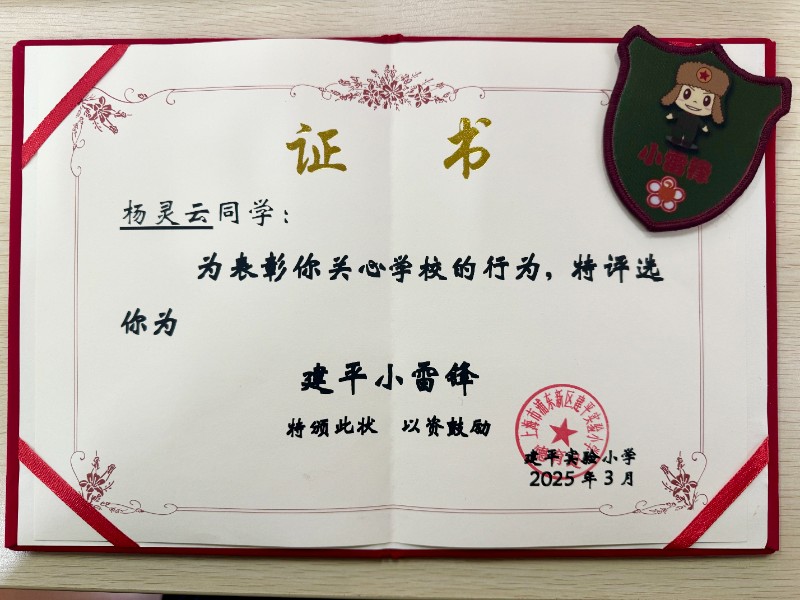 证 书
小雷锋
杨灵云同学：
为表彰你关心学校的行为，特评选
你为
建平小雷锋
特颁此状 以资鼓励
上海市浦东新区建平实验小学
建平实验小学
2025年3月